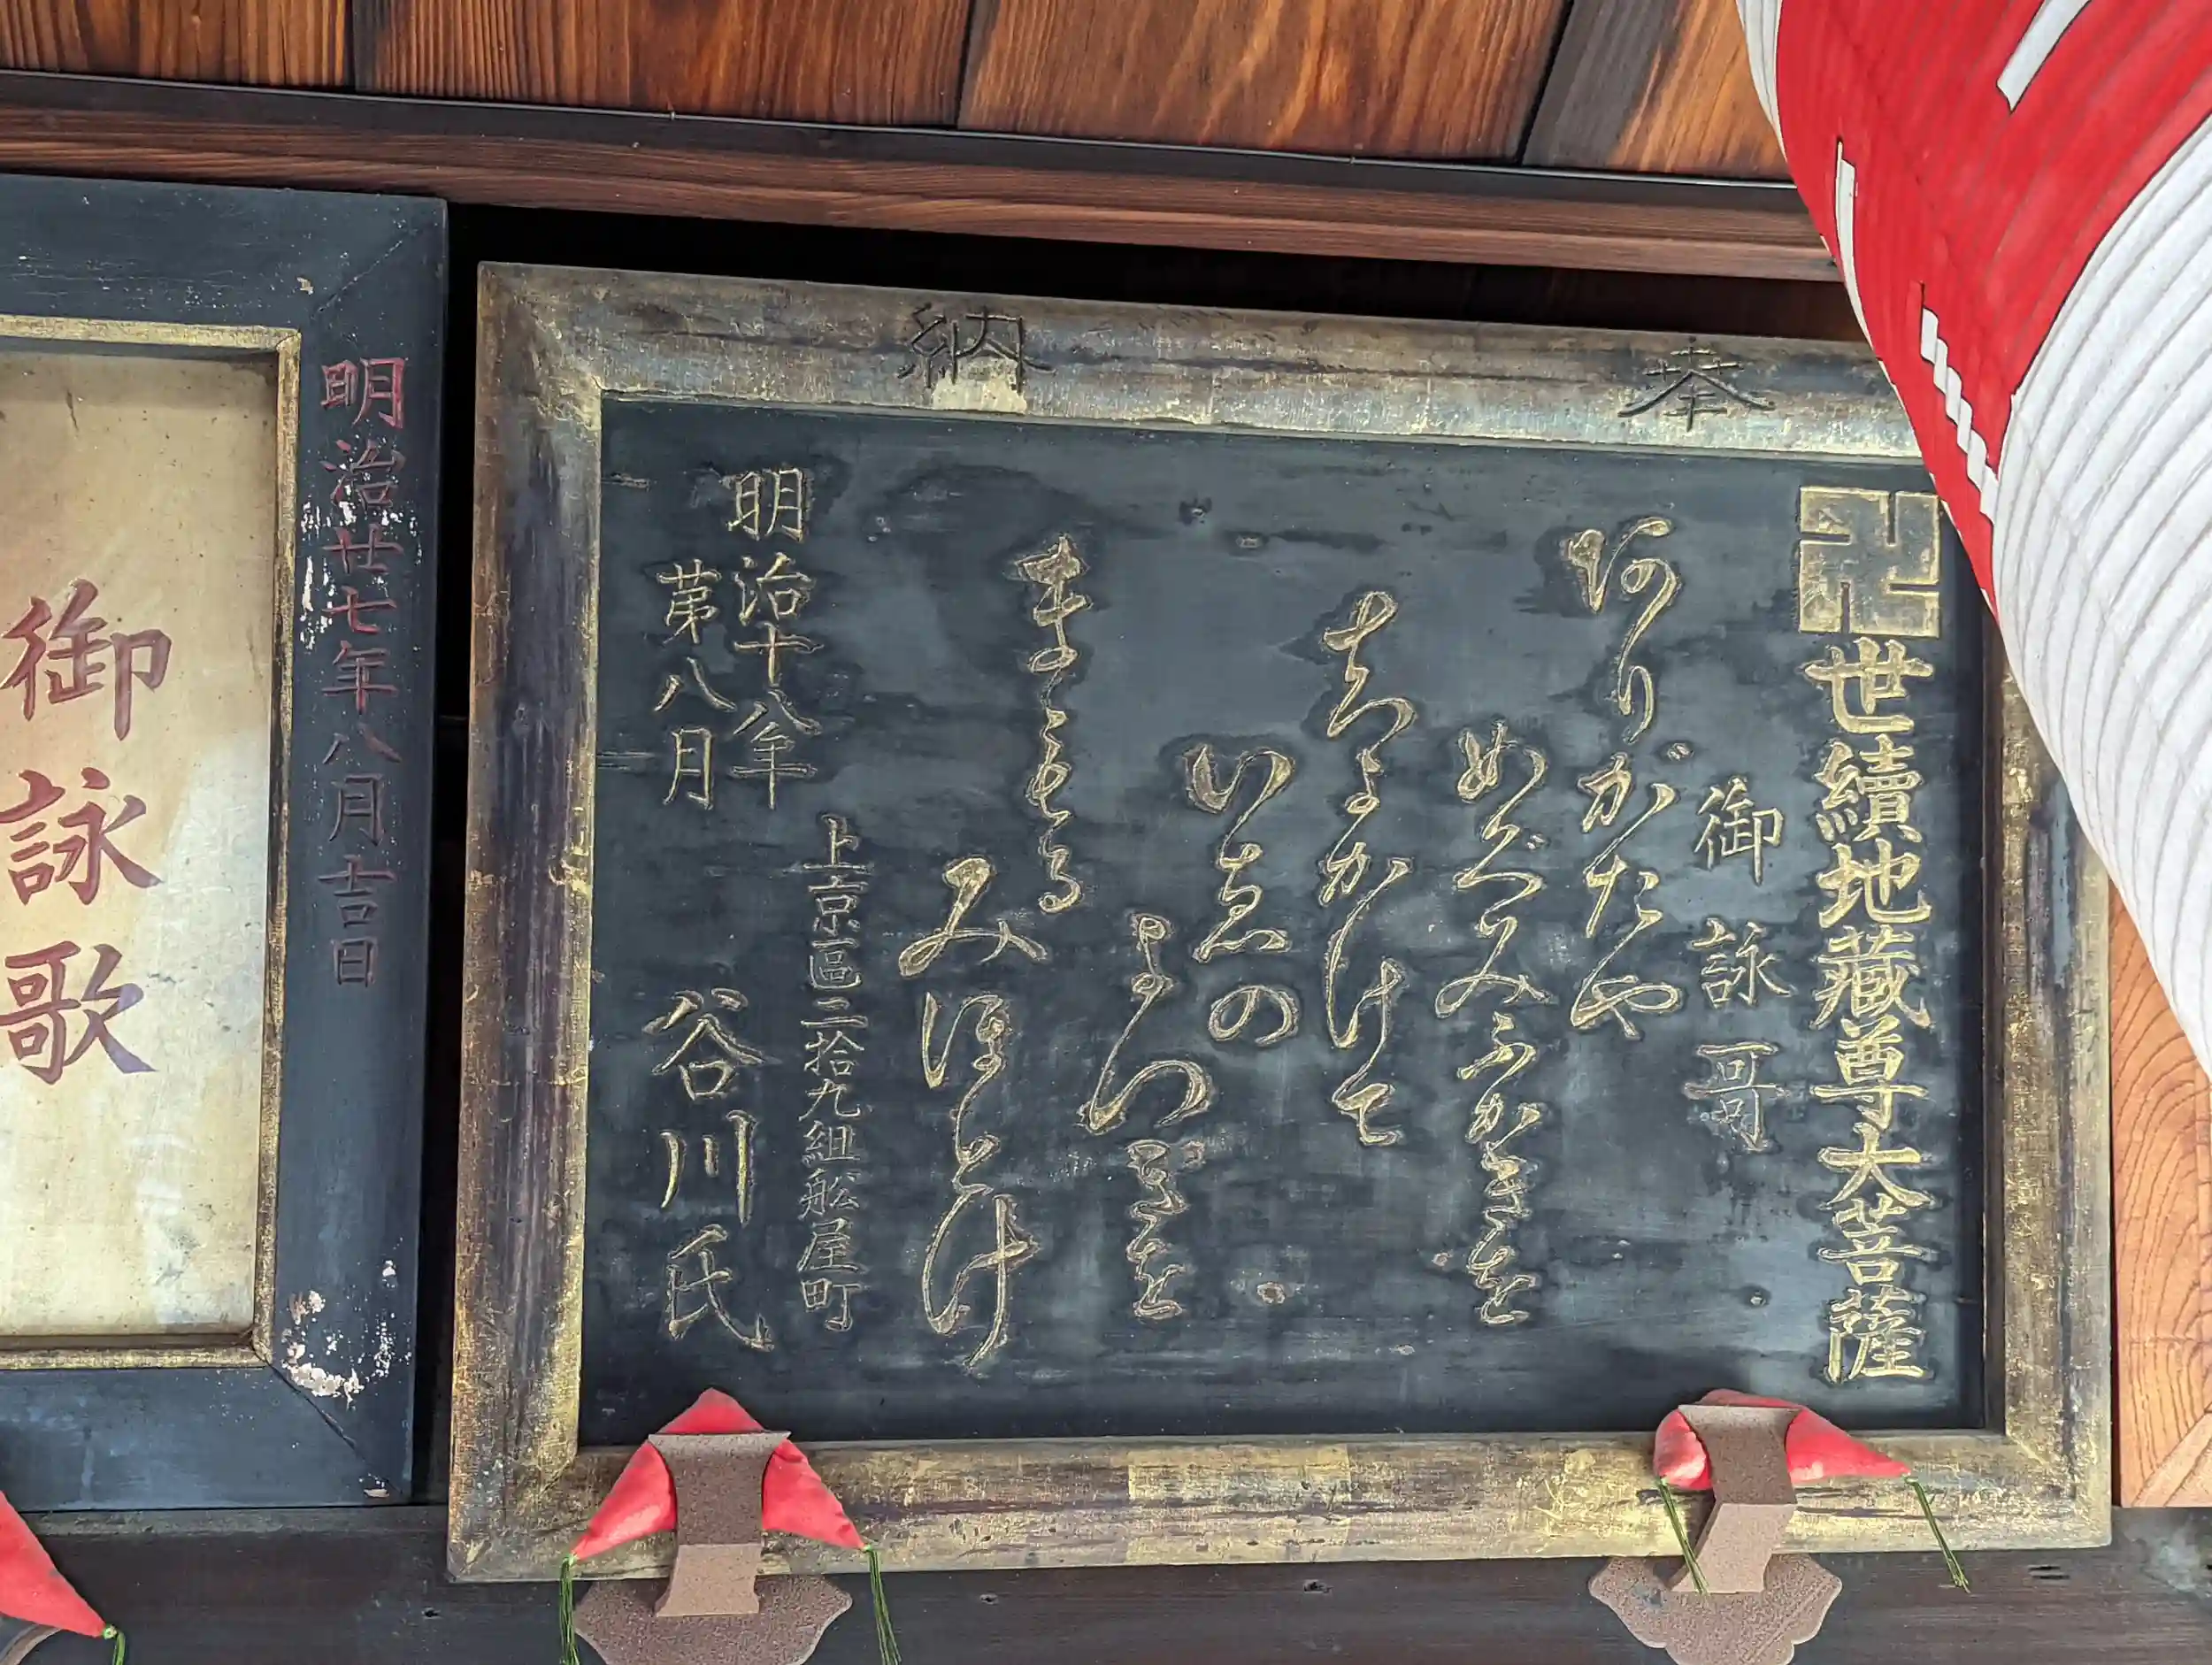 奉納
卍世續地藏尊大菩薩
御詠哥
阿りがたや
めぐみふかきを
かけて
いゑの
よつぎを
まもる
みほとけ
上京區二拾九組舩屋町
明治十八年
第八月
谷川氏
明治廿七年八月吉日
御詠歌